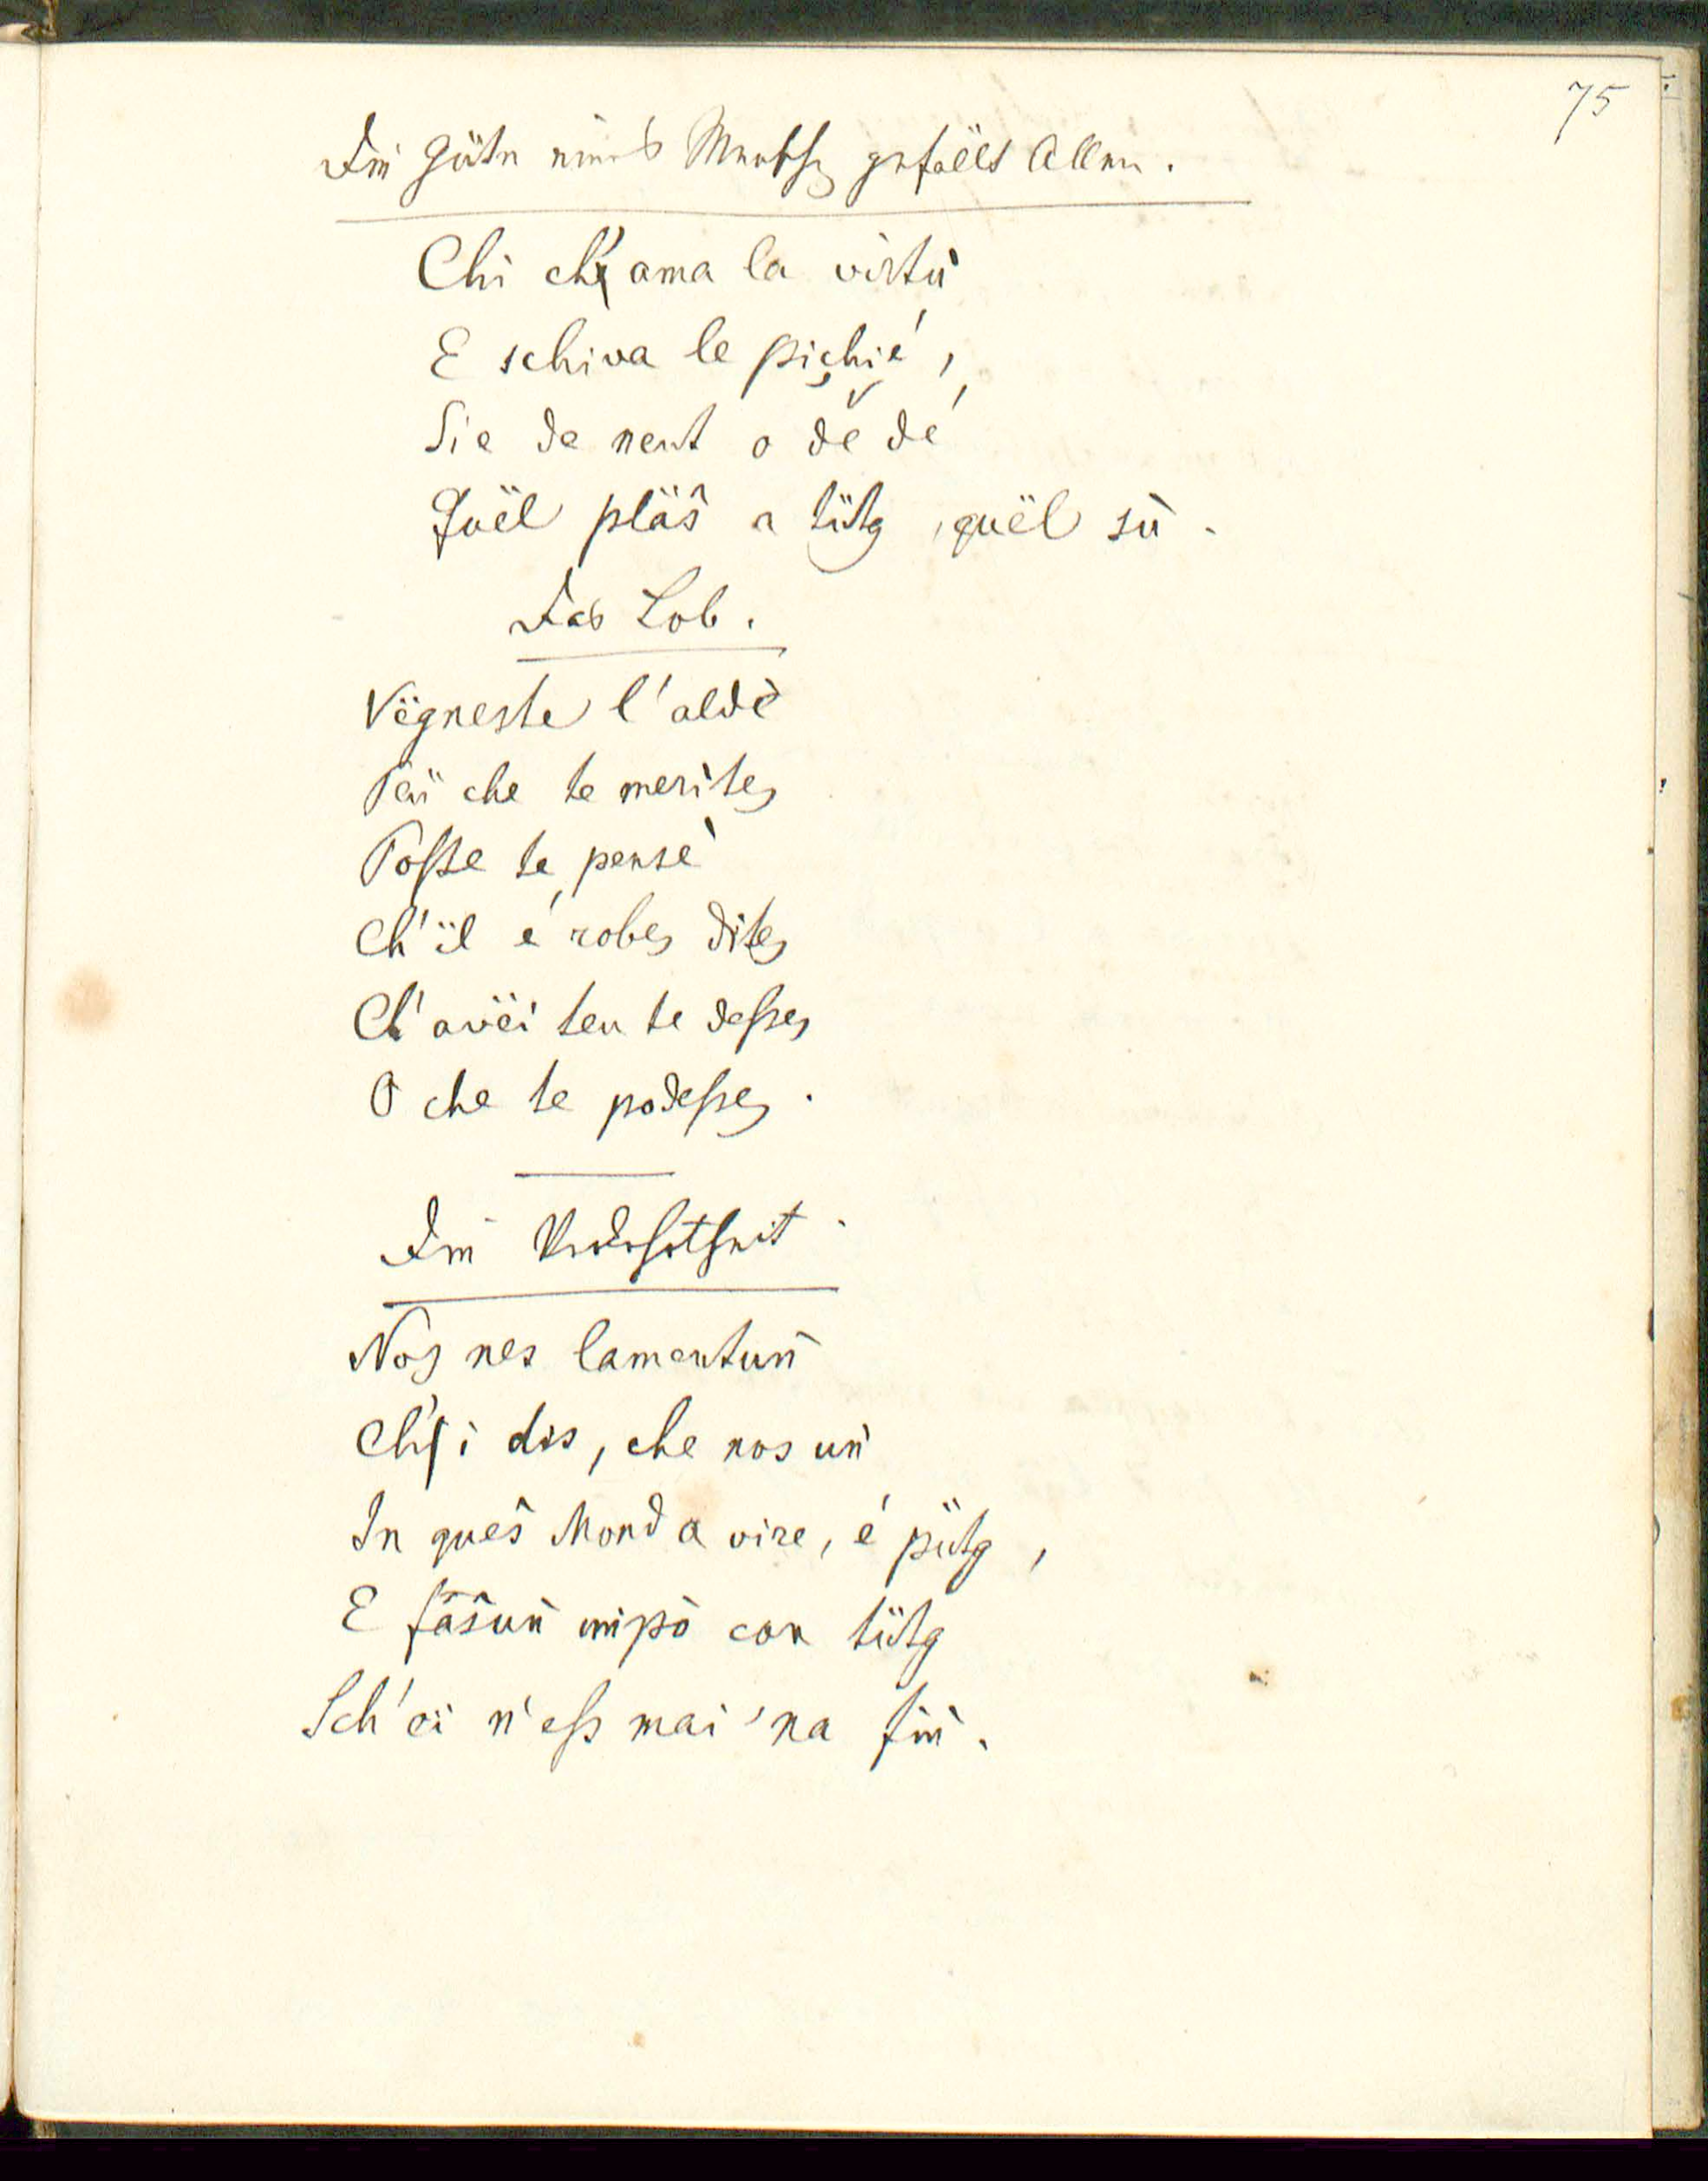 75
Die Güte eines Menschen gefällt Allen.
Chi ch' ama la virtù
E schiva le pichié,
Sie de neut o de dé
Quël pläŝ a tütg, quël sù.
Das Lob.
Vëgneste l'aldè
Plü che te merites
Posste te pensè
Ch'ël é robes dites
Ch'avëi teu te desses
O che te podesses.
Die
Nos nes lamentuǹ
Ch'i dis, che nos uǹ
In queŝ Mond a vire, é pütg,
E fàŝuǹ impò con tütg
Sch'ei n'ess mai 'na fiǹ.